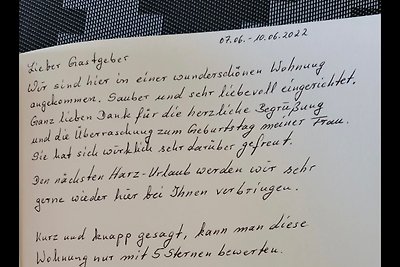 07.06. - 10.06.2022
Lieber Gastgeber
Wir sind hier in einer wunderschönen Wohnung
angekommen. Sauber und sehr liebevoll eingerichtet.
Ganz lieben Dank für die herzliche Begrüßung
und die Überraschung zum Geburtstag meiner Frau.
Sie hat sich wirklich sehr darüber gefreut.
Den nächsten Harz-Urlaub werden wir sehr
gerne wieder hier bei Ihnen verbringen.
Kurz und knapp gesagt, kann man diese
Wohnung nur mit 5 Sternen bewerten.